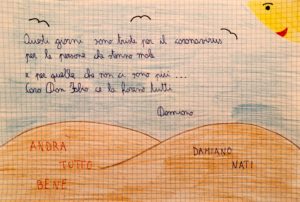 Questi giorni sono tristi per il coronavirus
per le persone che stanno male
e per quelle che non ci sono più ...
Caro Don Fabio ce la faremo tutti
Damiano
ANDRÀ
TUTTO
BENE
DAMIANO
NATI